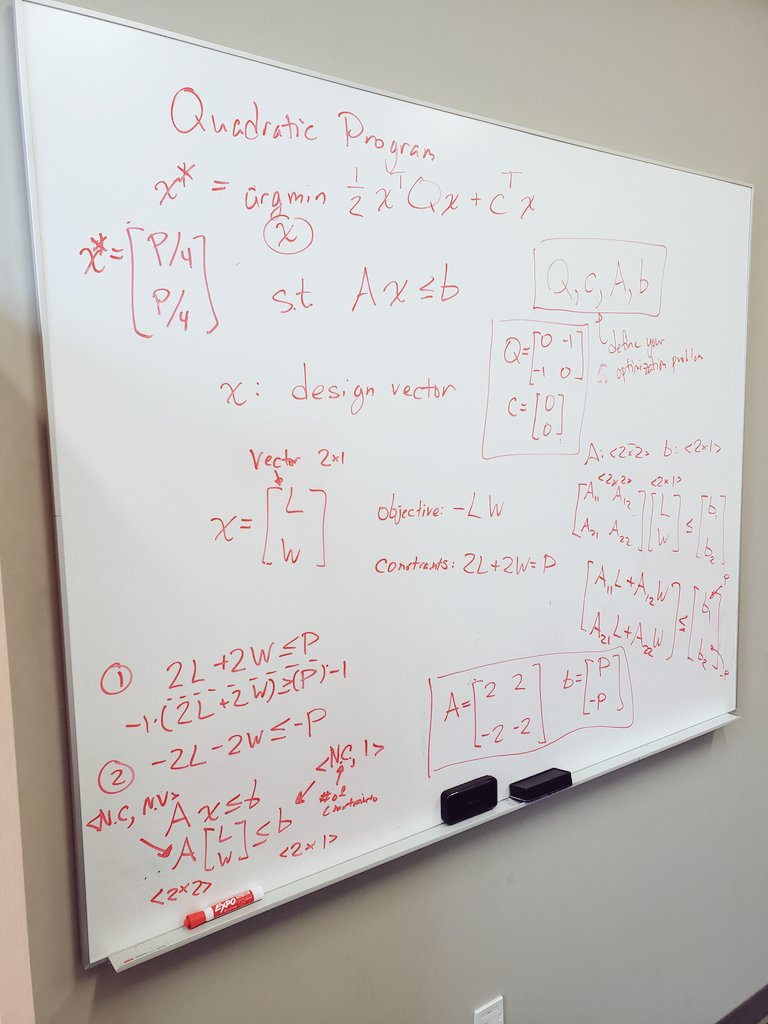 Quadratic Program
x* = argmin 1/2 xᵀQx + cᵀx
x
x* = [P/4
P/4]
s.t. Ax ≤ b
Q, c, A, b
define your
optimization problem
Q = [0 -1
-1 0]
c = [0
0]
x: design vector
Vector 2x1
x = [L
W]
objective: -LW
constraints: 2L+2W=P
A: <2x2> b: <2x1>
<2x2> <2x1>
[A₁₁ A₁₂
A₂₁ A₂₂] [L
W] ≤ [b₁
b₂]
[A₁₁L + A₁₂W
A₂₁L + A₂₂W] ≤ [b₁
b₂]
P
-P
① 2L + 2W ≤ P
-1·(2L + 2W) ≥ (P)·-1
② -2L - 2W ≤ -P
A = [2 2
-2 -2]
b = [P
-P]
<N.C, N.V>
Ax ≤ b
<N.C, 1>
# of
constraints
A [L
W] ≤ b
<2x2>
<2x1>
EXPO